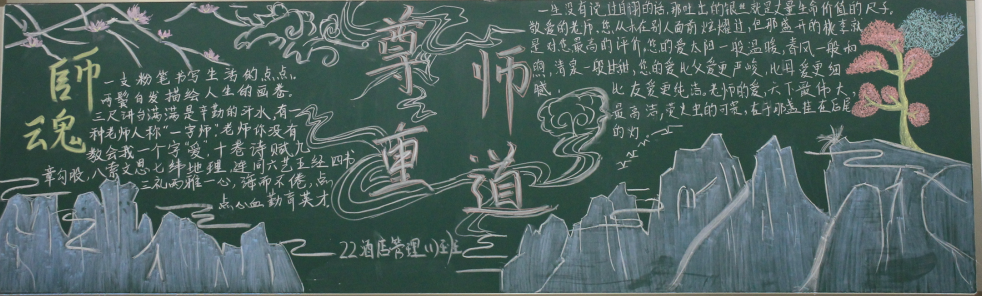 師魂
一支粉笔书写生活的点点。
两鬓白发描绘人生的画卷。
三尺讲台满满是辛勤的汗水,有一
种老师人称“一字师”。老师你没有
教会我一个字“爱”,十卷诗赋九
章勾股,八索文思七纬地理,连同六艺五经四书
三礼两雅一心,诲而不倦,点
点心血勤育英才
尊师
重道
22酒店管理(1)班
一生没有说过自栩的话,那吐出的银丝就是丈量生命价值的尺子,
敬爱的老师,您从未在别人面前炫耀过,但那盛开的桃李就
是对您最高的评价,您的爱太阳一般温暖,春风一般和
煦,清泉一般甘甜,您的爱比父爱更严峻,比母爱更细
腻,比友爱更纯洁。老师的爱,天下最伟大,
最高洁,
的灯